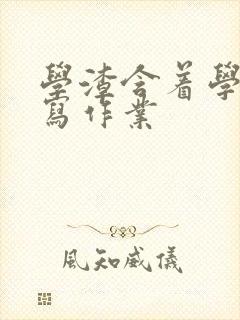 學渣含着學
寫作業
風知威儀